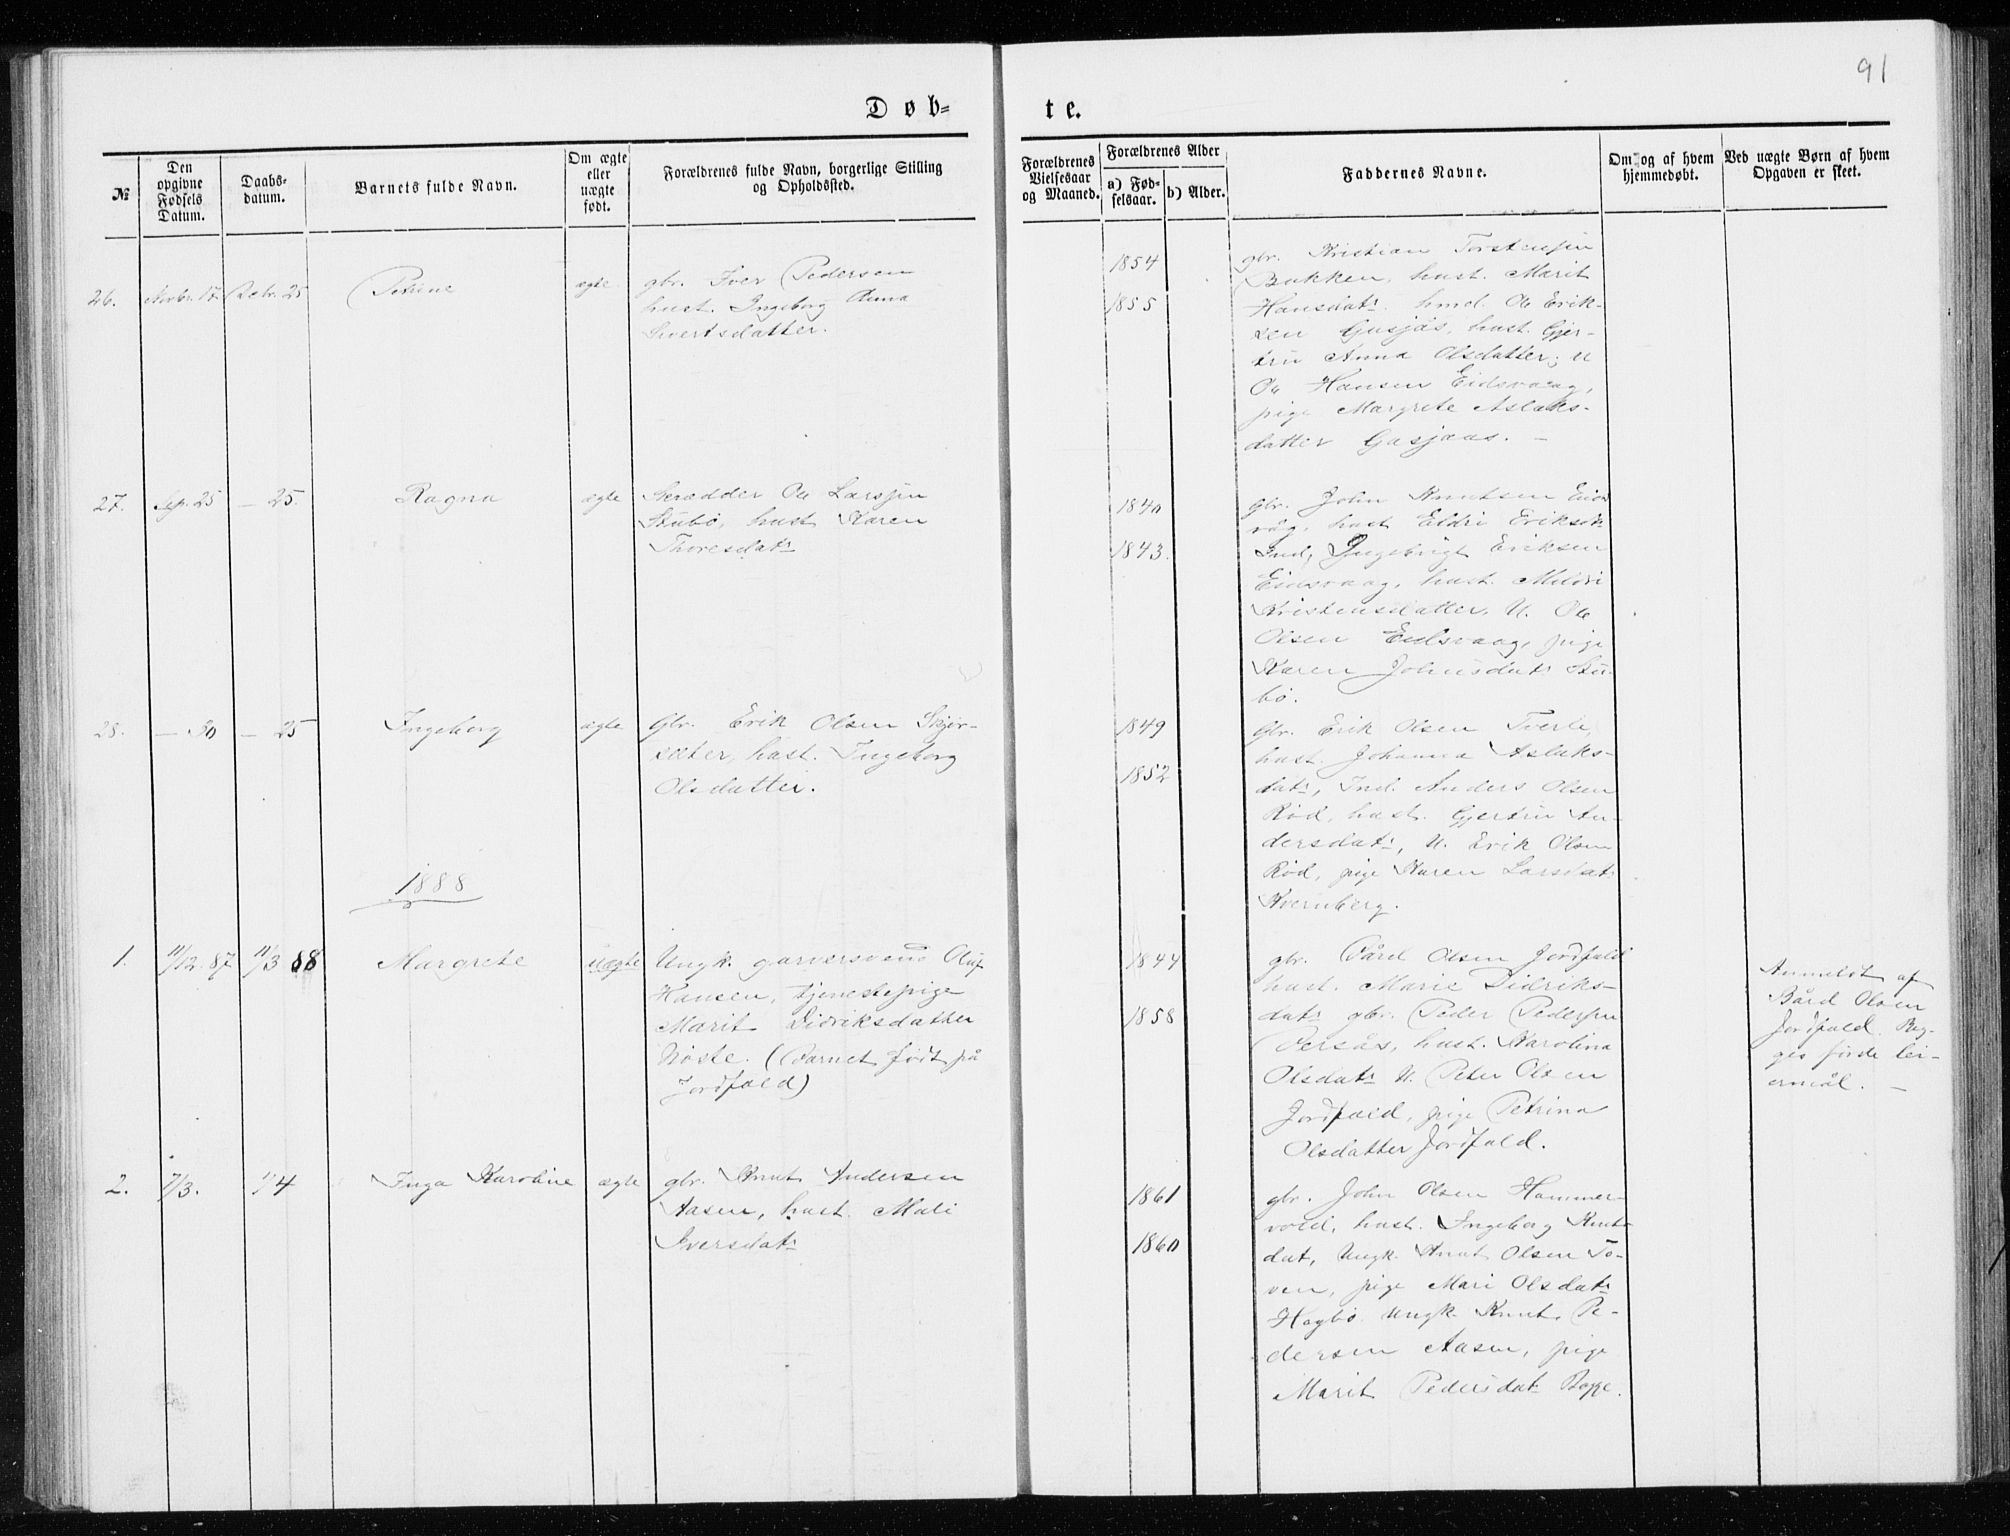 91
Døb-
te.
№
Den opgivne Fødsels Datum.
Daabs-datum.
Barnets fulde Navn.
Om ægte eller uægte født.
Forældrenes fulde Navn, borgerlige Stilling og Opholdssted.
Forældrenes Vielsesaar og Maaned.
Forældrenes Alder
a) Fød-selsaar.
b) Alder.
Faddernes Navne.
Om og af hvem hjemmedøbt.
Ved uægte Børn af hvem Opgaven er skeet.
26.
Novbr. 17
Debr. 25
Petrine
ægte
gbr. Iver Pedersen
hust. Ingeborg Anna
Sivertsdatter.
1854
1855
gbr. Kristian Torstensen
Bakken, hust. Marit
Hansdatr. hmd. Ole Erik-
sen Gusjås, hust. Gjer-
tru Anna Olsdatter, U
Ole Hansen Eidsvaag,
pige Margrete Aslaks-
datter Gusjaas. —
27.
Sep. 25
— 25.
Ragna
ægte
Skrædder Ole Larsen
Stubø, hust Karen
Thoresdatr
1840
1843.
gbr. John Knutsen Eids
våg, hust Eldri Eriksdr
Ind, Ingebrigt Eriksen
Eidsvaag, hust. Mildri
Kristensdatter, U. Ole
Olsen Eidsvaag, pige
Karen Johnsdatr Stu-
bø.
28.
— 30
— 25
Ingeborg
ægte
Gbr. Erik Olsen Skjør-
sæter, hust. Ingeborg
Olsdatter.
1849
1852
Gbr. Erik Olsen Tverli,
hust. Johanna Aslaks-
datr, Ind. Anders Olsen
Rød, hust. Gjertru An-
dersdatr, U. Erik Olsen
Rød, pige Karen Larsdatr
Kvernberg.
1888
1.
11/12.87
11/3 88
Margrete
uægte
Ungk. garversvend Oluf
Hansen, tjenestepige
Marit Didriksdatter
Nøste. (Barnet født på
Jordfald)
1844
1858
gbr. Bård Olsen Jordfald
hust. Marie Didriks-
datr gbr. Peder Pedersen
Versås, hust. Karolina
Olsdatr U. Peter Olsen
Jordfald, pige Petrina
Olsdatter Jordfald.
Anmeldt af
Bård Olsen
Jordfald. Beg-
ges første lei-
ermål. —
2.
7/3.
1/4
Inga Karoline
ægte
gbr. Knut Andersen
Aasen, hust. Mali
Iversdatr
1861
1860
gbr. John Olsen Hammer-
vold, hust. Ingeborg Knuts-
dat, Ungk. Knut Olsen To-
ven, pige Mari Olsdatr
Hagbø. Ungk. Knut Pe-
dersen Aasen, pige
Marit Pedersdatr Bogge.